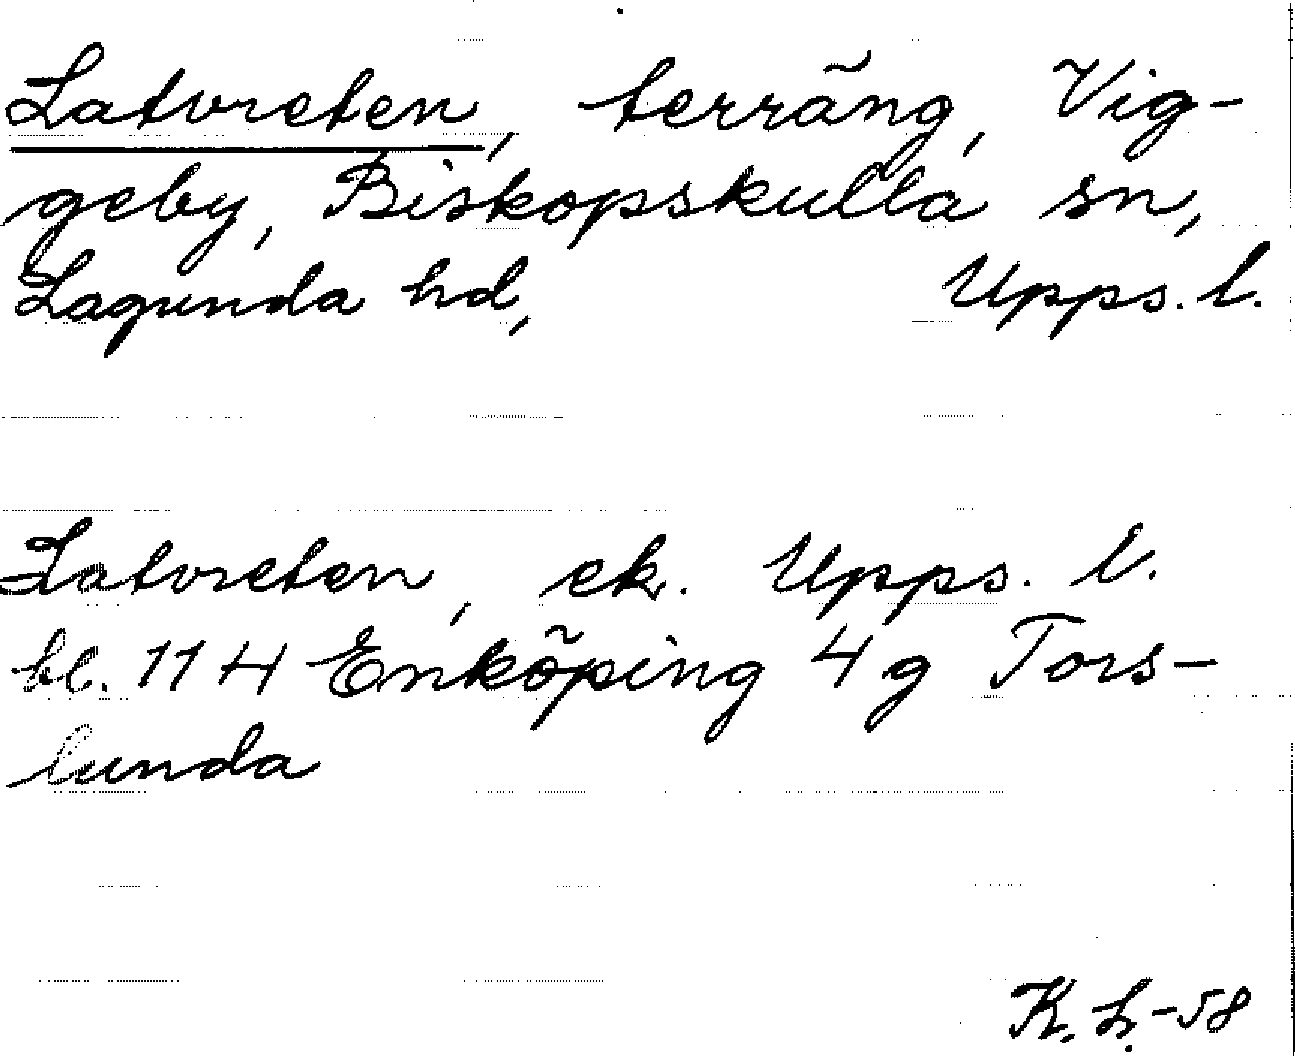 Latvreten, terräng, Vig-
geby, Biskopskulla sn,
Lagunda hd, Upps. l.
Latvreten, ek. Upps. l.
bl. 11 H Enköping 4 g Tors-
lunda
K. L. -58